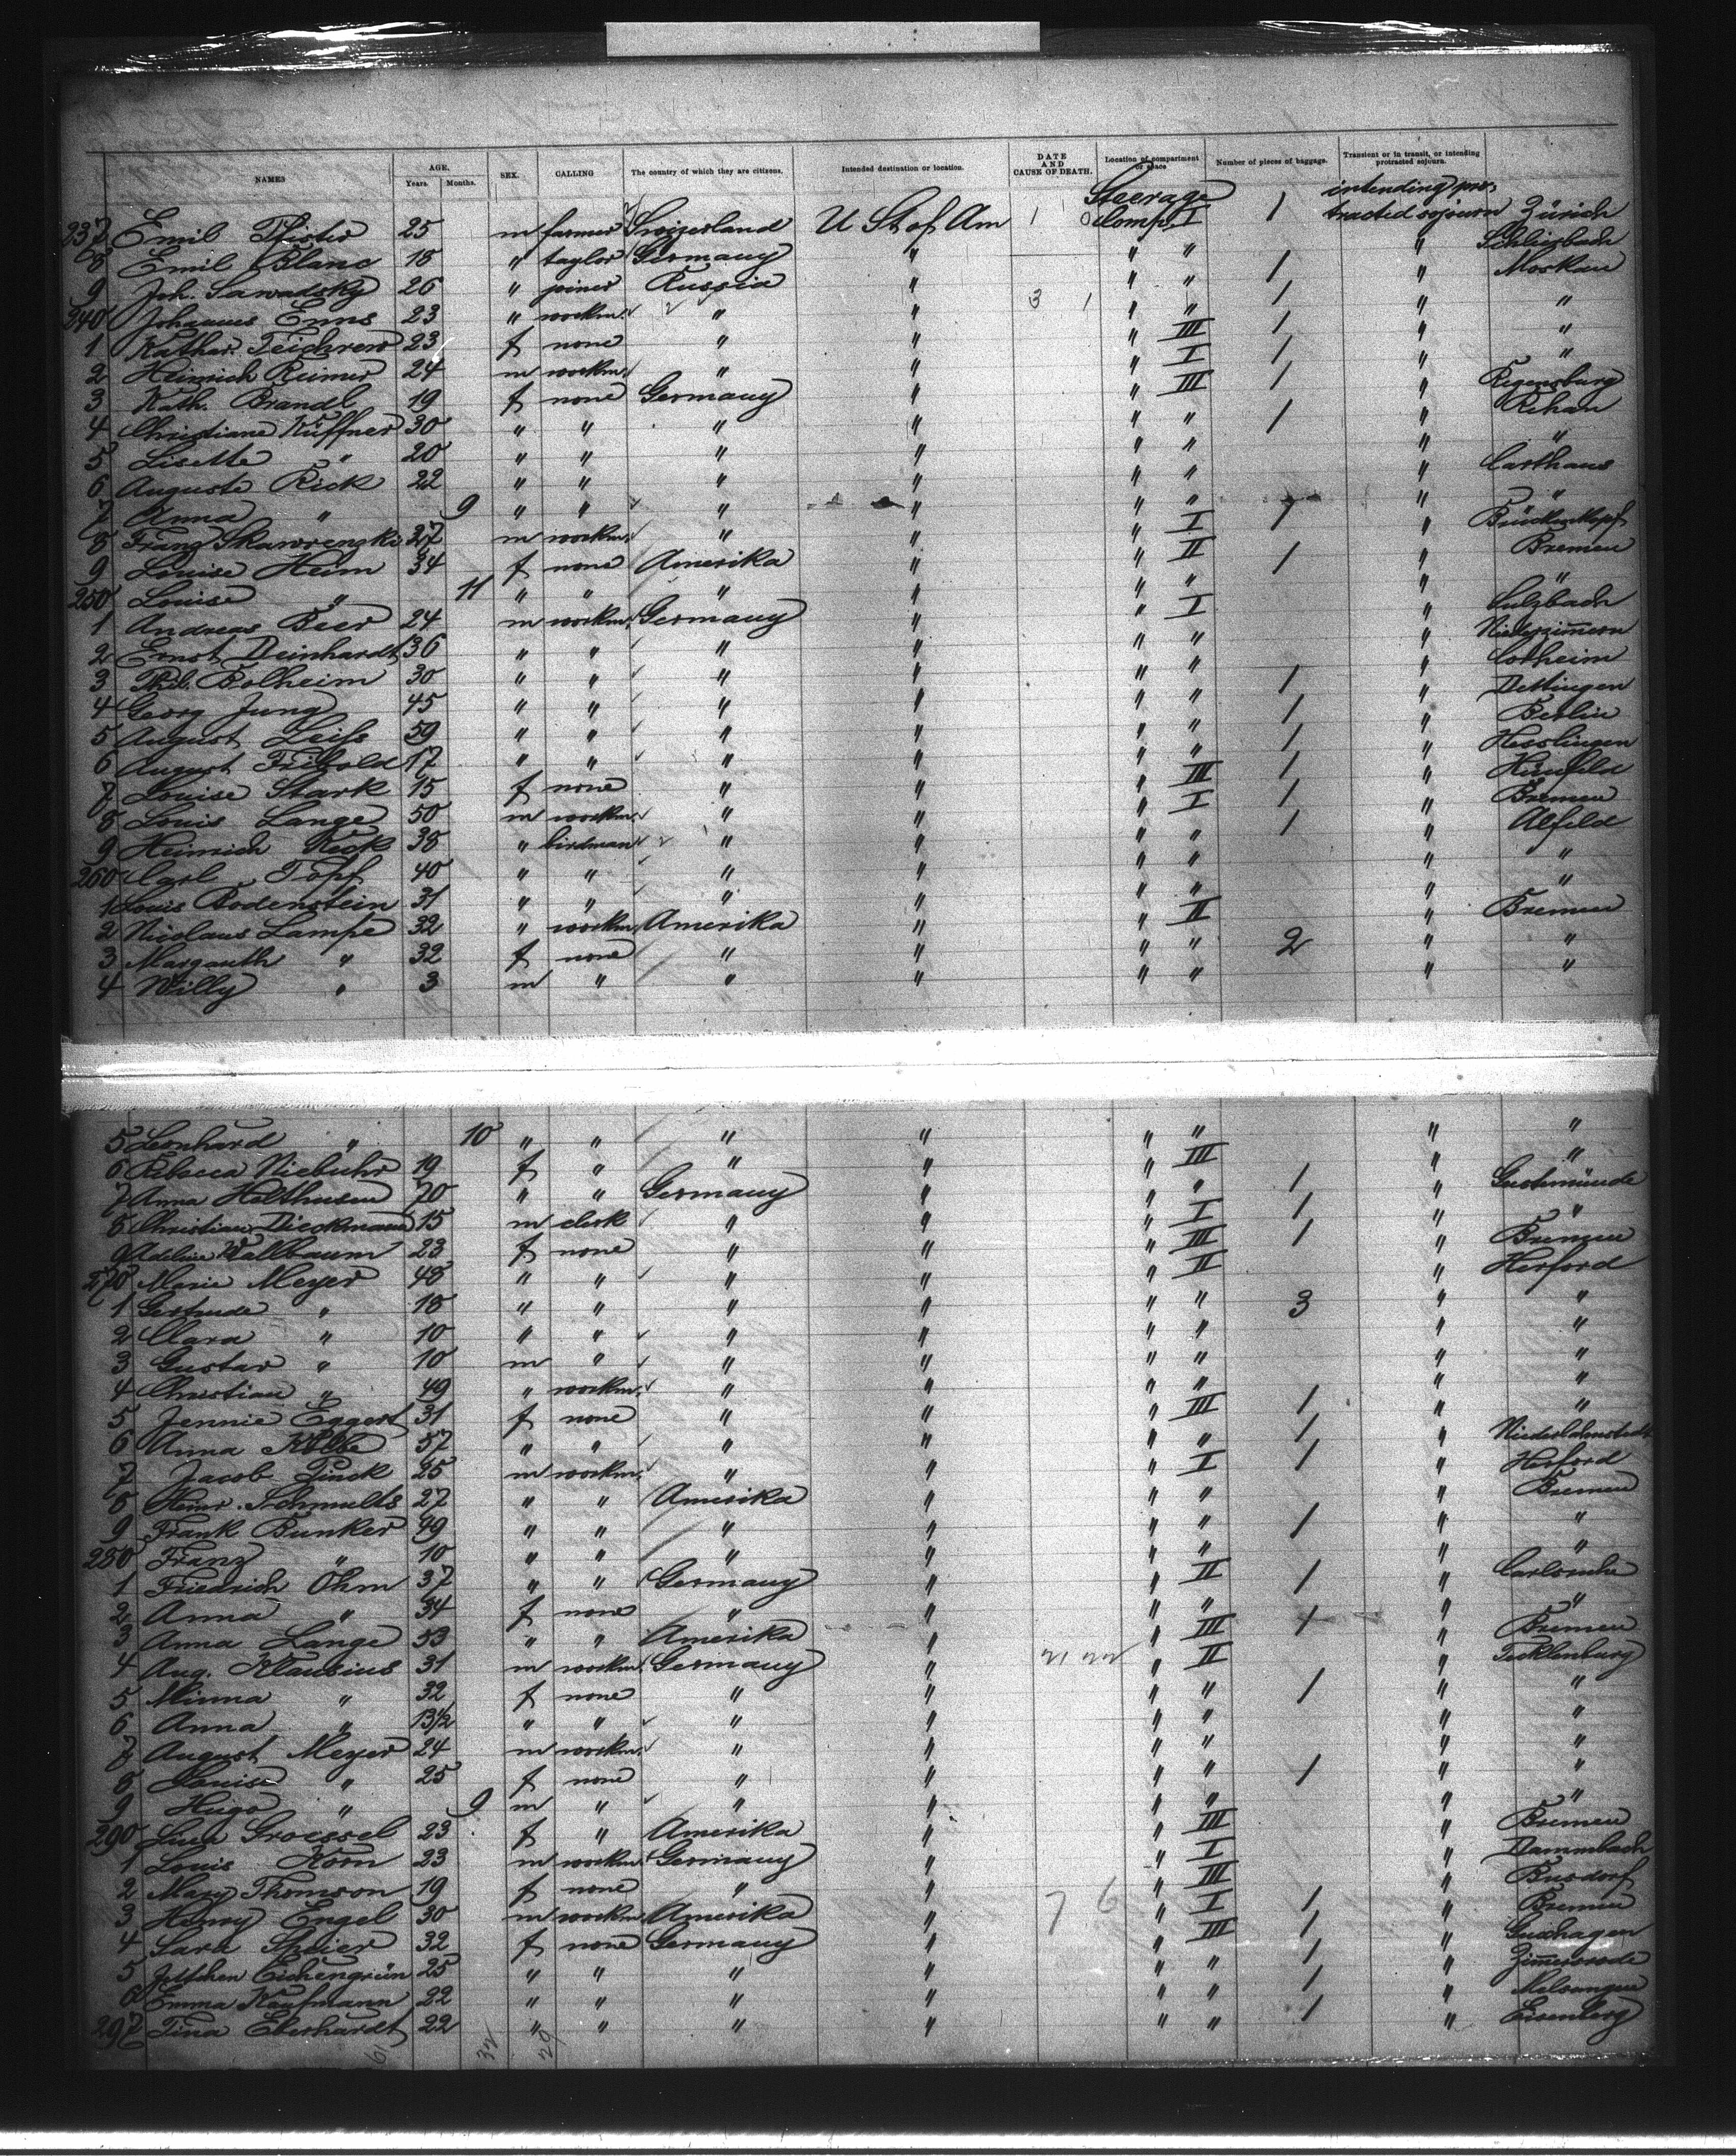 NAMES AGE. Years. Months. SEX. CALLING The country of which they are citizens. Intended destination or location. DATE AND CAUSE OF DEATH. Location of compartment or space Number of pieces of baggage. Transient or in transit, or intending protracted sojourn.
237 Emil Pfister 25 m farmer Swizerland U St of Am Steerage Comp. I 1 intending pro- tracted sojourn Zürich
8 Emil Blanc 18 " taylor Germany " " " " Schliesbach
9 Joh. Sawadsky 26 " joiner Russia " " " 1 " Moskau
240 Johannes Enns 23 " workm. " " " " 1 " "
1 Kathar. Teichrew 23 f none " " " III 1 " "
2 Heinrich Reimer 24 m workm. " " " I 1 " "
3 Kath. Brandl 19 f none Germany " " III 1 " Regensburg
4 Christiane Küffner 30 " " " " " " 1 " Rehau
5 Lisette " 20 " " " " " " " "
6 Auguste Rick 22 " " " " " " " Carthaus
7 Anna " 9 " " " " " " 1 " "
8 Franz Skawrenski 37 m workm. " " " I " Brückenkopf
9 Louise Heim 34 f none Amerika " " II 1 " Bremen
250 Louise " 11 " " " " " " " "
1 Andreas Beer 24 m workm. Germany " " I " Sulzbach
2 Ernst Deinhardt 36 " " " " " " " Niederzimmern
3 Phil. Bolheim 30 " " " " " " 1 " Costheim
4 Georg Jung 45 " " " " " " 1 " Dettingen
5 August Leiss 59 " " " " " " 1 " Berlin
6 August Tribold 17 " " " " " " 1 " Hesslingen
7 Louise Stark 15 f none " " " III 1 " Hünfeld
8 Louis Lange 50 m workm. " " " I 1 " Bremen
9 Heinrich Keck 38 " birdman " " " " 1 " Alfeld
260 Carl Topf 40 " " " " " " " "
1 Louis Bodenstein 31 " " " " " " " "
2 Nicolaus Lampe 32 " workm. Amerika " " II " Bremen
3 Margareth " 32 f none " " " " 2 " "
4 Willy " 3 m " " " " " " "
5 Leonhard " 10 " " " " " " " "
6 Rebecca Niebuhr 19 f " " " " III " "
7 Anna Holthusen 70 " " Germany " " " 1 " Geestemünde
8 Christian Dieckmann 15 m clerk " " " I 1 " "
9 Adeline Wallbaum 23 f none " " " III 1 " Bremen
270 Marie Meyer 48 " " " " " II " Herford
1 Gertrude " 18 " " " " " " 3 " "
2 Clara " 10 " " " " " " " "
3 Gustav " 10 m " " " " " " "
4 Christian " 49 " workm. " " " " " "
5 Jennie Eggert 31 f none " " " III 1 " "
6 Anna Kolbe 57 " " " " " " 1 " Niederdalmstedt
7 Jacob Pinck 25 m workm. " " " I 1 " Herford
8 Heinr. Schmults 27 " " Amerika " " " " Bremen
9 Frank Bunker 49 " " " " " " 1 " "
280 Franz " 10 " " " " " " " "
1 Friedrich Ohm 37 " " Germany " " II 1 " Carlsruhe
2 Anna " 34 f none " " " " " "
3 Anna Lange 53 " " Amerika " " III 1 " Bremen
4 Aug. Klausius 31 m workm. Germany " " II " Tecklenburg
5 Minna " 32 f none " " " " 1 " "
6 Anna " 13 1/2 " " " " " " " "
7 August Meyer 24 m workm. " " " " " "
8 Louise " 25 f none " " " " 1 " "
9 Hugo " 9 m " " " " " " "
290 Lina Groessel 23 f " Amerika " " III " Bremen
1 Louis Korn 23 m workm. Germany " " I " Dammbach
2 Mary Thomson 19 f none " " " III " Busdorf
3 Henry Engel 30 m workm. Amerika " " I 1 " Bremen
4 Sara Speier 32 f none Germany " " III 1 " Guxhagen
5 Jettchen Eichengrün 25 " " " " " " 1 " Zimmersrode
6 Emma Kaufmann 22 " " " " " " 1 " Melsungen
297 Tina Eberhardt 22 " " " " " " 1 " Eisenberg